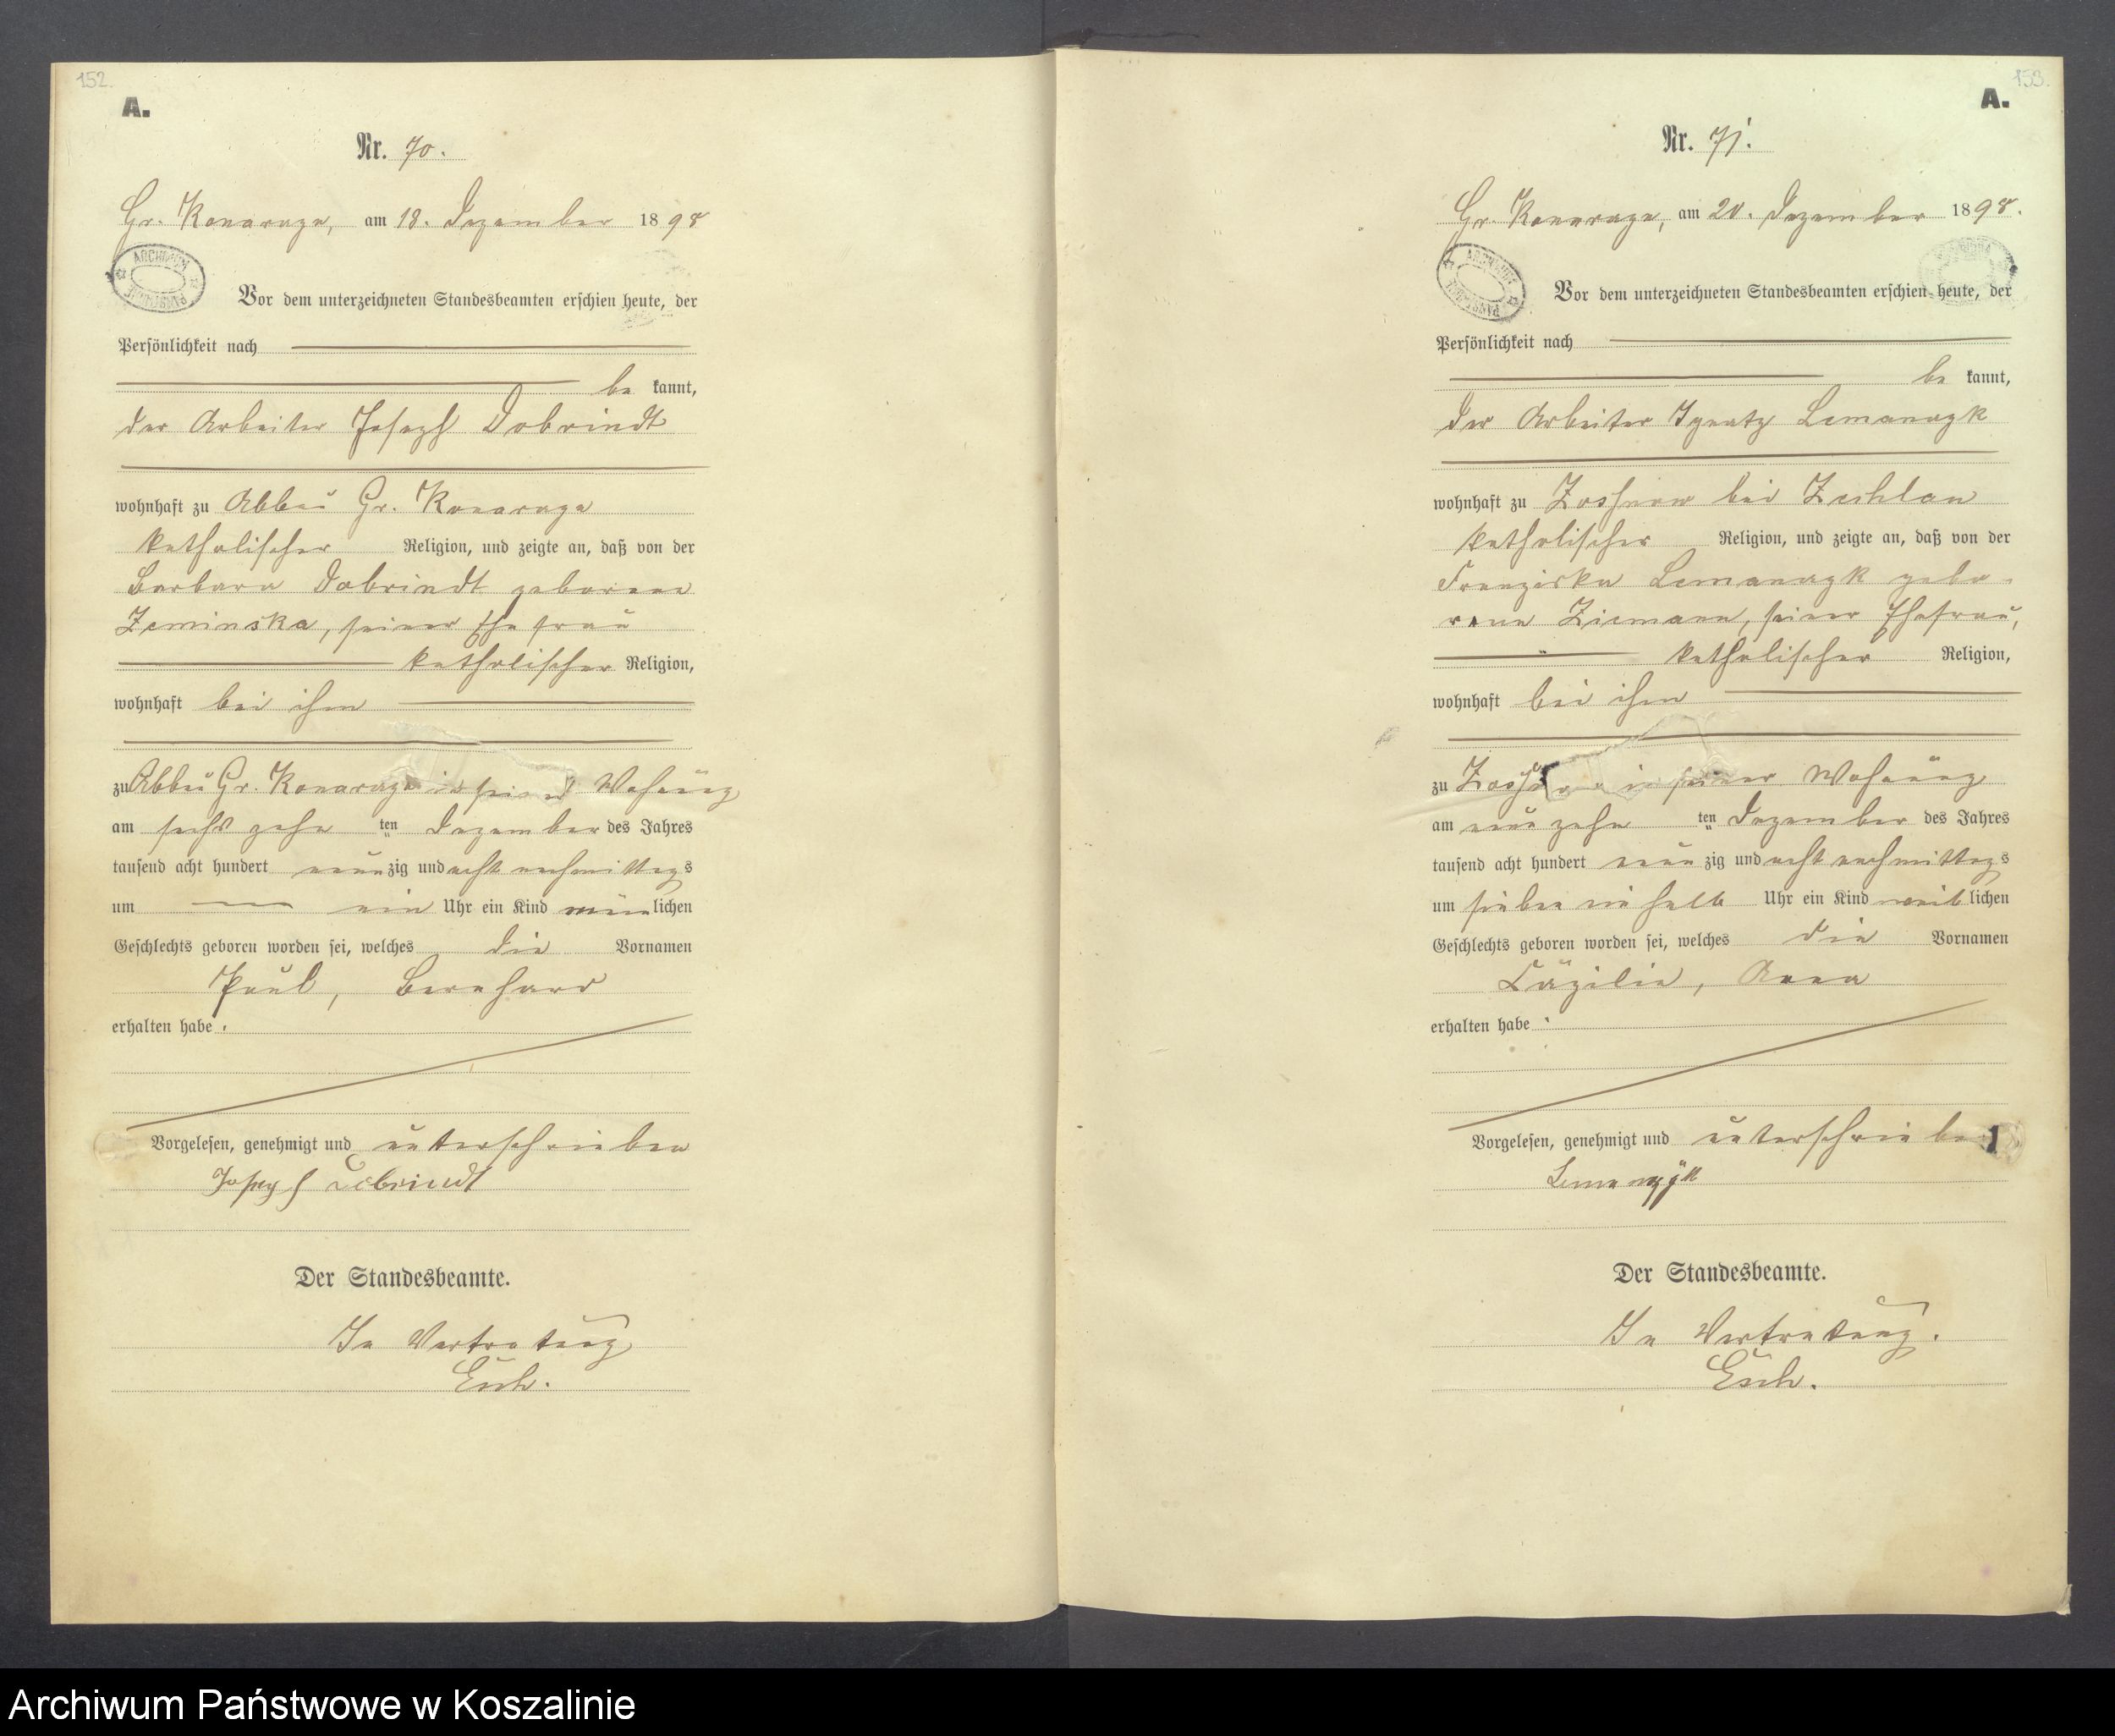 152.
A.
Nr. 70.
Gr. Konarzyn, am 18. Dezember 1898
ARCHIWUM
Vor dem unterzeichneten Standesbeamten erschien heute, der
Persönlichkeit nach
be kannt,
der Arbeiter Joseph Dobrindt
wohnhaft zu Abbau Gr. Konarzyn
katholischer Religion, und zeigte an, daß von der
Barbara Dobrindt geborene
Zeminska, seiner Ehefrau
katholischer Religion,
wohnhaft bei ihm
zu Abbau Gr. Konarzyn in seiner Wohnung
am sechszehn ten Dezember des Jahres
tausend acht hundert neunzig und acht nachmittags
um ein Uhr ein Kind männlichen
Geschlechts geboren worden sei, welches die Vornamen
Paul, Bernhard
erhalten habe.
Vorgelesen, genehmigt und unterschrieben
Joseph Dobrindt
Der Standesbeamte.
In Vertretung
153.
A.
Nr. 71.
Gr. Konarzyn, am 20. Dezember 1898.
ARCHIWUM
Vor dem unterzeichneten Standesbeamten erschien heute, der
Persönlichkeit nach
be kannt,
der Arbeiter Ignatz Lemanczyk
wohnhaft zu bei
katholischer Religion, und zeigte an, daß von der
Franziska Lemanczyk gebo-
rene Ziemann, seiner Ehefrau,
katholischer Religion,
wohnhaft bei ihm
zu in seiner Wohnung
am neunzehn ten Dezember des Jahres
tausend acht hundert neunzig und acht nachmittags
um sieben ein halb Uhr ein Kind weiblichen
Geschlechts geboren worden sei, welches die Vornamen
Cäzilie, Anna
erhalten habe.
Vorgelesen, genehmigt und unterschrieben
Der Standesbeamte.
In Vertretung.
Archiwum Państwowe w Koszalinie